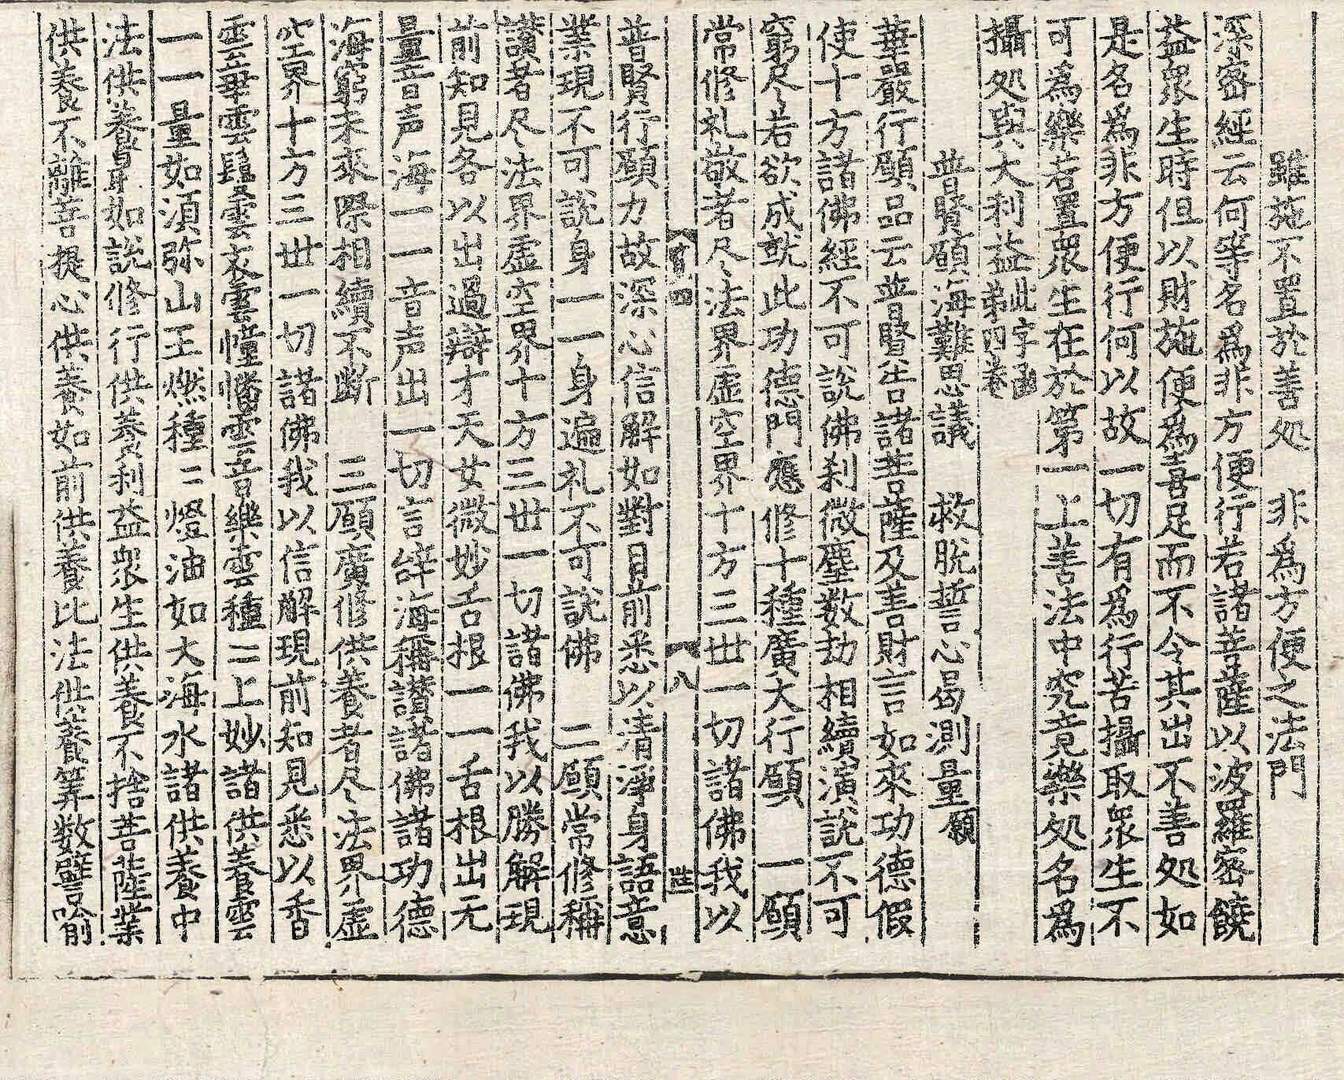 雖施不置於善処　非為方便之法門
深密經云何等名為非方便行若諸菩薩以波羅密饒
益眾生時但以財施便為喜足而不令其出不善処如
是名為非方便行何以故一切有為行苦攝取眾生不
可為樂若置眾生在於第一上善法中究竟樂処名為
攝処與大利益此字函第四卷
普賢願海難思議　救脫誓心曷測量願
華嚴行願品云普賢告諸菩薩及善財言如來功德假
使十方諸佛經不可說佛刹微塵数劫相續演說不可
窮尽若欲成就此功德門應修十種廣大行願　一願
常修礼敬者尽法界虛空界十方三世一切諸佛我以
宝四　八
普賢行願力故深心信解如對目前悉以清淨身語意
業現不可說身一一身遍礼不可說佛　二願常修稱
讃者尽法界虛空界十方三世一切諸佛我以勝解現
前知見各以出過辯才天女微妙舌根一一舌根出无
量音声海一一音声出一切言辝海稱讃諸佛諸功德
海窮未來際相續不断　三願廣修供養者尽法界虛
空界十方三世一切諸佛我以信解現前知見悉以香
雲華雲鬘雲衣雲幢幡雲音樂雲種〻上妙諸供養雲
一一量如湏弥山王燃種〻燈油如大海水諸供養中
法供養最如說修行供養利益眾生供養不捨菩薩業
供養不離菩提心供養如前供養比法供養筭数譬喻